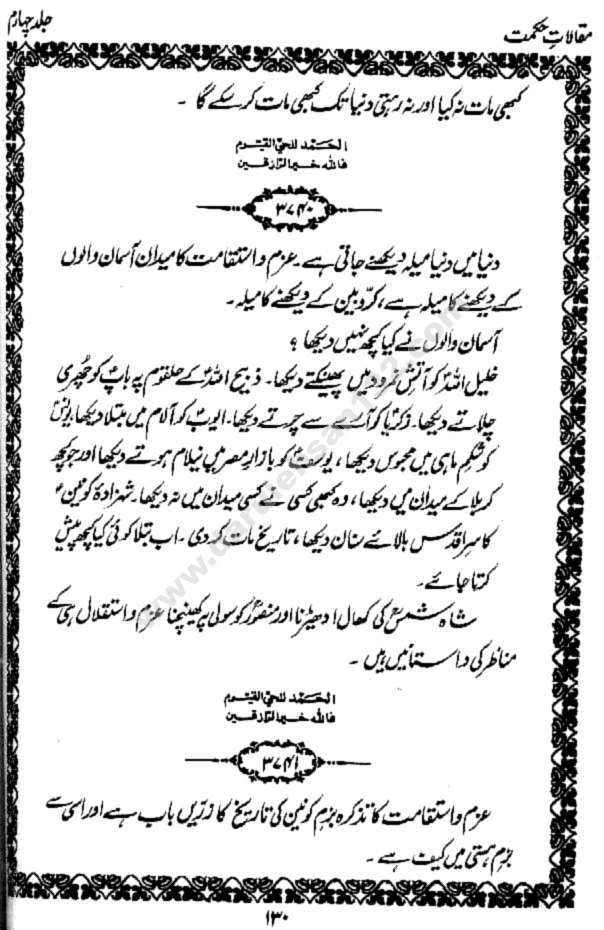 مقالاتِ حکمت
جلد چہارم
کبھی مات نہ کیا اور نہ رہتی دنیا تک کبھی مات کر سکے گا ۔
الحمد للحی القیوم
فاللہ خیر الرازقین
۳۷۴۰
دنیا میں دنیا میلہ دیکھنے جاتی ہے۔ عزم و استقامت کا میدان آسمان والوں
کے دیکھنے کا میلہ ہے ، کرّوبین کے دیکھنے کا میلہ ۔
آسمان والوں نے کیا کچھ نہیں دیکھا ؟
خلیل اللہؑ کو آتشِ نمرود میں پھینکتے دیکھا۔ ذبیح اللہؑ کے حلقوم پہ باپؑ کو چُھری
چلاتے دیکھا۔ زکریاؑ کو آرے سے چرتے دیکھا۔ ایوبؑ کو آلام میں مبتلا دیکھا، یونسؑ
کو شکمِ ماہی میں محبوس دیکھا ، یوسفؑ کو بازارِ مصر میں نیلام ہوتے دیکھا اور جو کچھ
کربلا کے میدان میں دیکھا ، وہ کبھی کسی نے کسی میدان میں نہ دیکھا۔ شہزادۂ کونینؑ
کا سرِ اقدس بالائے سنان دیکھا ، تاریخ مات کر دی ۔ اب بتلا کوئی کیا کچھ پیش
کرتا جائے۔
شاہ شمسؒ کی کھال ادھیڑنا اور منصورؒ کو سولی پر کھینچنا عزم و استقلال ہی کے
مناظر کی داستانیں ہیں ۔
الحمد للحی القیوم
فاللہ خیر الرازقین
۳۷۴۱
عزم و استقامت کا تذکرہ بزمِ کونین کی تاریخ کا زرّیں باب ہے اور اسی سے
بزمِ ہستی میں کیف ہے ۔
۱۳۰